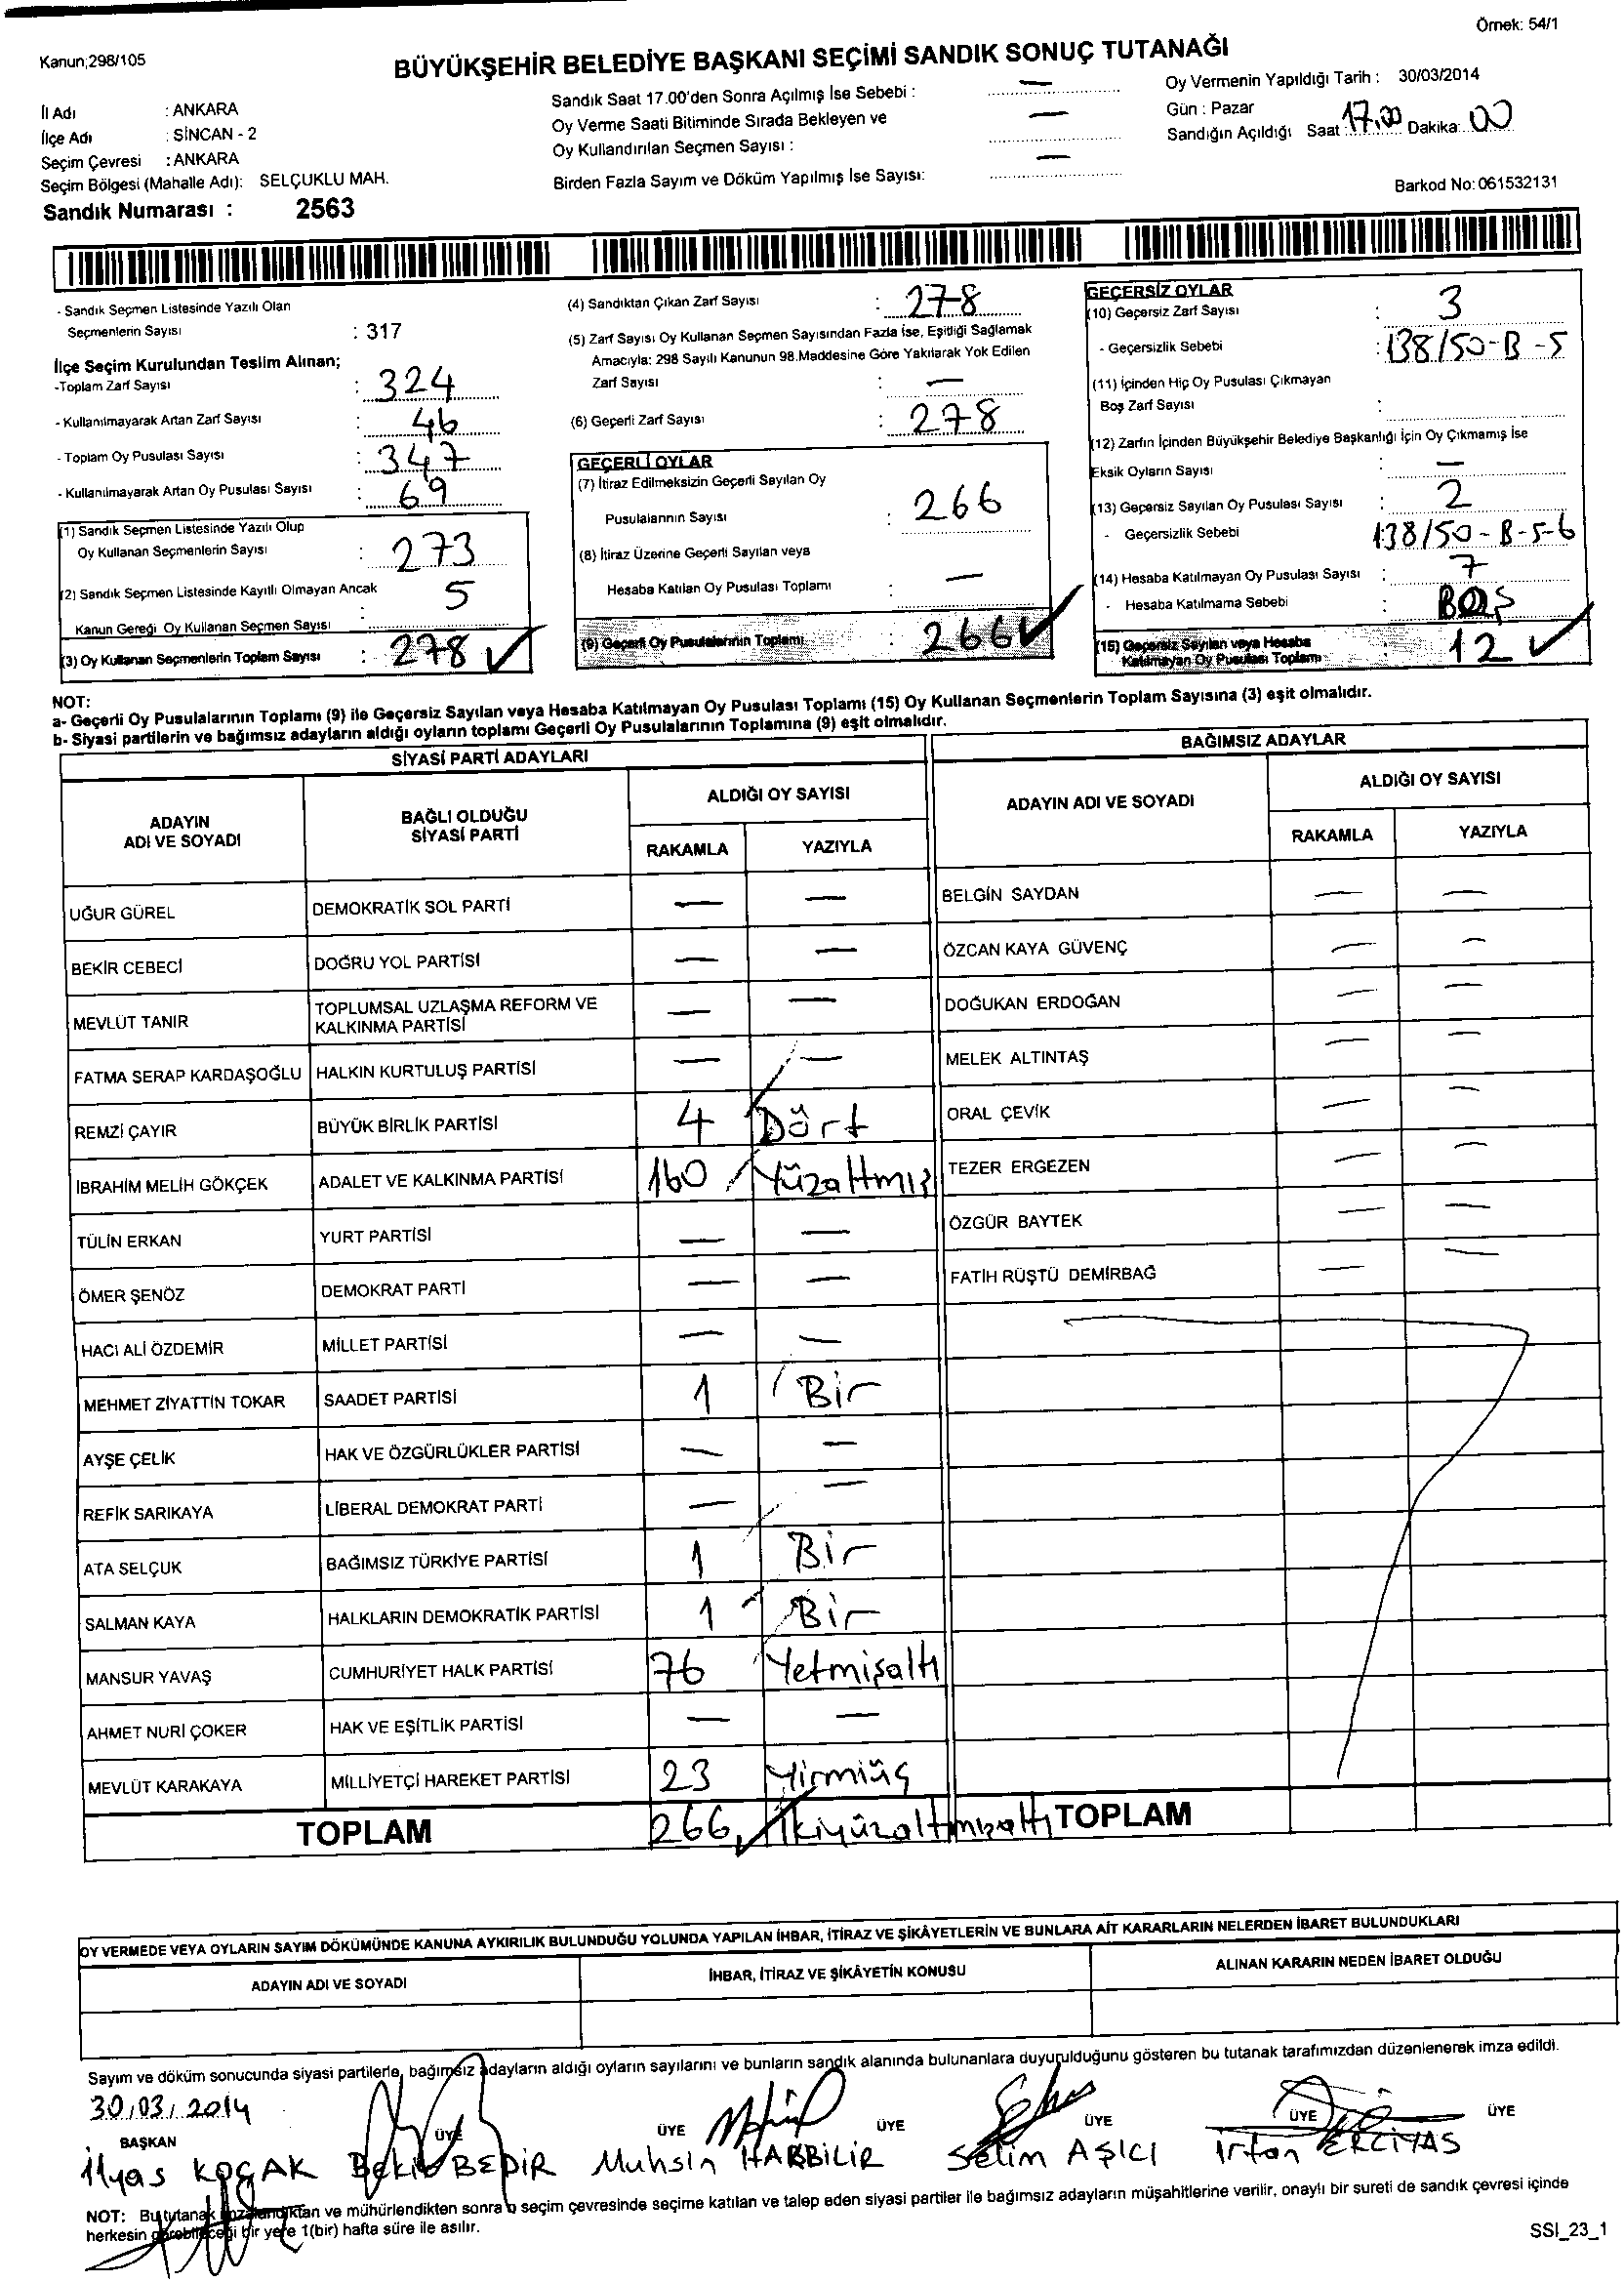 Örnek: 54/1
Kanun;298/105
BÜYÜKŞEHİR BELEDİYE BAŞKANI SEÇİMİ SANDIK SONUÇ TUTANAĞI
İl Adı : ANKARA
İlçe Adı : SİNCAN - 2
Seçim Çevresi : ANKARA
Seçim Bölgesi (Mahalle Adı): SELÇUKLU MAH.
Sandık Numarası : 2563
Sandık Saat 17.00'den Sonra Açılmış İse Sebebi : —
Oy Verme Saati Bitiminde Sırada Bekleyen ve —
Oy Kullandırılan Seçmen Sayısı :
Birden Fazla Sayım ve Döküm Yapılmış İse Sayısı: —
Oy Vermenin Yapıldığı Tarih : 30/03/2014
Gün : Pazar
Sandığın Açıldığı Saat : 17.00 Dakika: 00
Barkod No: 061532131
- Sandık Seçmen Listesinde Yazılı Olan
Seçmenlerin Sayısı : 317
İlçe Seçim Kurulundan Teslim Alınan;
-Toplam Zarf Sayısı : 324
- Kullanılmayarak Artan Zarf Sayısı : 46
- Toplam Oy Pusulası Sayısı : 347
- Kullanılmayarak Artan Oy Pusulası Sayısı : 69
(1) Sandık Seçmen Listesinde Yazılı Olup
Oy Kullanan Seçmenlerin Sayısı : 273
(2) Sandık Seçmen Listesinde Kayıtlı Olmayan Ancak
Kanun Gereği Oy Kullanan Seçmen Sayısı : 5
(3) Oy Kullanan Seçmenlerin Toplam Sayısı : 278
(4) Sandıktan Çıkan Zarf Sayısı : 278
(5) Zarf Sayısı Oy Kullanan Seçmen Sayısından Fazla İse, Eşitliği Sağlamak
Amacıyla: 298 Sayılı Kanunun 98.Maddesine Göre Yakılarak Yok Edilen
Zarf Sayısı : —
(6) Geçerli Zarf Sayısı : 278
GEÇERLİ OYLAR
(7) İtiraz Edilmeksizin Geçerli Sayılan Oy
Pusulalarının Sayısı : 266
(8) İtiraz Üzerine Geçerli Sayılan veya
Hesaba Katılan Oy Pusulası Toplamı : —
(9) Geçerli Oy Pusulalarının Toplamı : 266
GEÇERSİZ OYLAR
(10) Geçersiz Zarf Sayısı : 3
- Geçersizlik Sebebi : 138/50-B-5
(11) İçinden Hiç Oy Pusulası Çıkmayan
Boş Zarf Sayısı :
(12) Zarfın İçinden Büyükşehir Belediye Başkanlığı İçin Oy Çıkmamış İse
Eksik Oyların Sayısı : —
(13) Geçersiz Sayılan Oy Pusulası Sayısı : 2
- Geçersizlik Sebebi : 138/50-B-5-6
(14) Hesaba Katılmayan Oy Pusulası Sayısı : 7
- Hesaba Katılmama Sebebi : BOŞ
(15) Geçersiz Sayılan veya Hesaba
Katılmayan Oy Pusulası Toplamı : 12
NOT:
a- Geçerli Oy Pusulalarının Toplamı (9) ile Geçersiz Sayılan veya Hesaba Katılmayan Oy Pusulası Toplamı (15) Oy Kullanan Seçmenlerin Toplam Sayısına (3) eşit olmalıdır.
b- Siyasi partilerin ve bağımsız adayların aldığı oyların toplamı Geçerli Oy Pusulalarının Toplamına (9) eşit olmalıdır.
SİYASİ PARTİ ADAYLARI
ADAYIN ADI VE SOYADI BAĞLI OLDUĞU SİYASİ PARTİ ALDIĞI OY SAYISI
RAKAMLA YAZIYLA
UĞUR GÜREL DEMOKRATİK SOL PARTİ — —
BEKİR CEBECİ DOĞRU YOL PARTİSİ — —
MEVLÜT TANIR TOPLUMSAL UZLAŞMA REFORM VE KALKINMA PARTİSİ — —
FATMA SERAP KARDAŞOĞLU HALKIN KURTULUŞ PARTİSİ — —
REMZİ ÇAYIR BÜYÜK BİRLİK PARTİSİ 4 Dört
İBRAHİM MELİH GÖKÇEK ADALET VE KALKINMA PARTİSİ 160 Yüzaltmış
TÜLİN ERKAN YURT PARTİSİ — —
ÖMER ŞENÖZ DEMOKRAT PARTİ — —
HACI ALİ ÖZDEMİR MİLLET PARTİSİ — —
MEHMET ZİYATTİN TOKAR SAADET PARTİSİ 1 Bir
AYŞE ÇELİK HAK VE ÖZGÜRLÜKLER PARTİSİ — —
REFİK SARIKAYA LİBERAL DEMOKRAT PARTİ — —
ATA SELÇUK BAĞIMSIZ TÜRKİYE PARTİSİ 1 Bir
SALMAN KAYA HALKLARIN DEMOKRATİK PARTİSİ 1 Bir
MANSUR YAVAŞ CUMHURİYET HALK PARTİSİ 76 Yetmişaltı
AHMET NURİ ÇOKER HAK VE EŞİTLİK PARTİSİ — —
MEVLÜT KARAKAYA MİLLİYETÇİ HAREKET PARTİSİ 23 Yirmiüç
TOPLAM 266 İkiyüzaltmışaltı
BAĞIMSIZ ADAYLAR
ADAYIN ADI VE SOYADI ALDIĞI OY SAYISI
RAKAMLA YAZIYLA
BELGİN SAYDAN — —
ÖZCAN KAYA GÜVENÇ — —
DOĞUKAN ERDOĞAN — —
MELEK ALTINTAŞ — —
ORAL ÇEVİK — —
TEZER ERGEZEN — —
ÖZGÜR BAYTEK — —
FATİH RÜŞTÜ DEMİRBAĞ — —
TOPLAM
OY VERMEDE VEYA OYLARIN SAYIM DÖKÜMÜNDE KANUNA AYKIRILIK BULUNDUĞU YOLUNDA YAPILAN İHBAR, İTİRAZ VE ŞİKÂYETLERİN VE BUNLARA AİT KARARLARIN NELERDEN İBARET BULUNDUKLARI
ADAYIN ADI VE SOYADI İHBAR, İTİRAZ VE ŞİKÂYETİN KONUSU ALINAN KARARIN NEDEN İBARET OLDUĞU
Sayım ve döküm sonucunda siyasi partilerle, bağımsız adayların aldığı oyların sayılarını ve bunların sandık alanında bulunanlara duyurulduğunu gösteren bu tutanak tarafımızdan düzenlenerek imza edildi.
30/03/2014
BAŞKAN ÜYE ÜYE ÜYE ÜYE ÜYE ÜYE
İlyas KOÇAK Bekir BEDİR Muhsin HARBİLİR Selim AŞICI İrfan ERCİYAS
NOT: Bu tutanak imzalandıktan ve mühürlendikten sonra o seçim çevresinde seçime katılan ve talep eden siyasi partiler ile bağımsız adayların müşahitlerine verilir, onaylı bir sureti de sandık çevresi içinde
herkesin görebileceği bir yere 1(bir) hafta süre ile asılır.
SSI_23_1